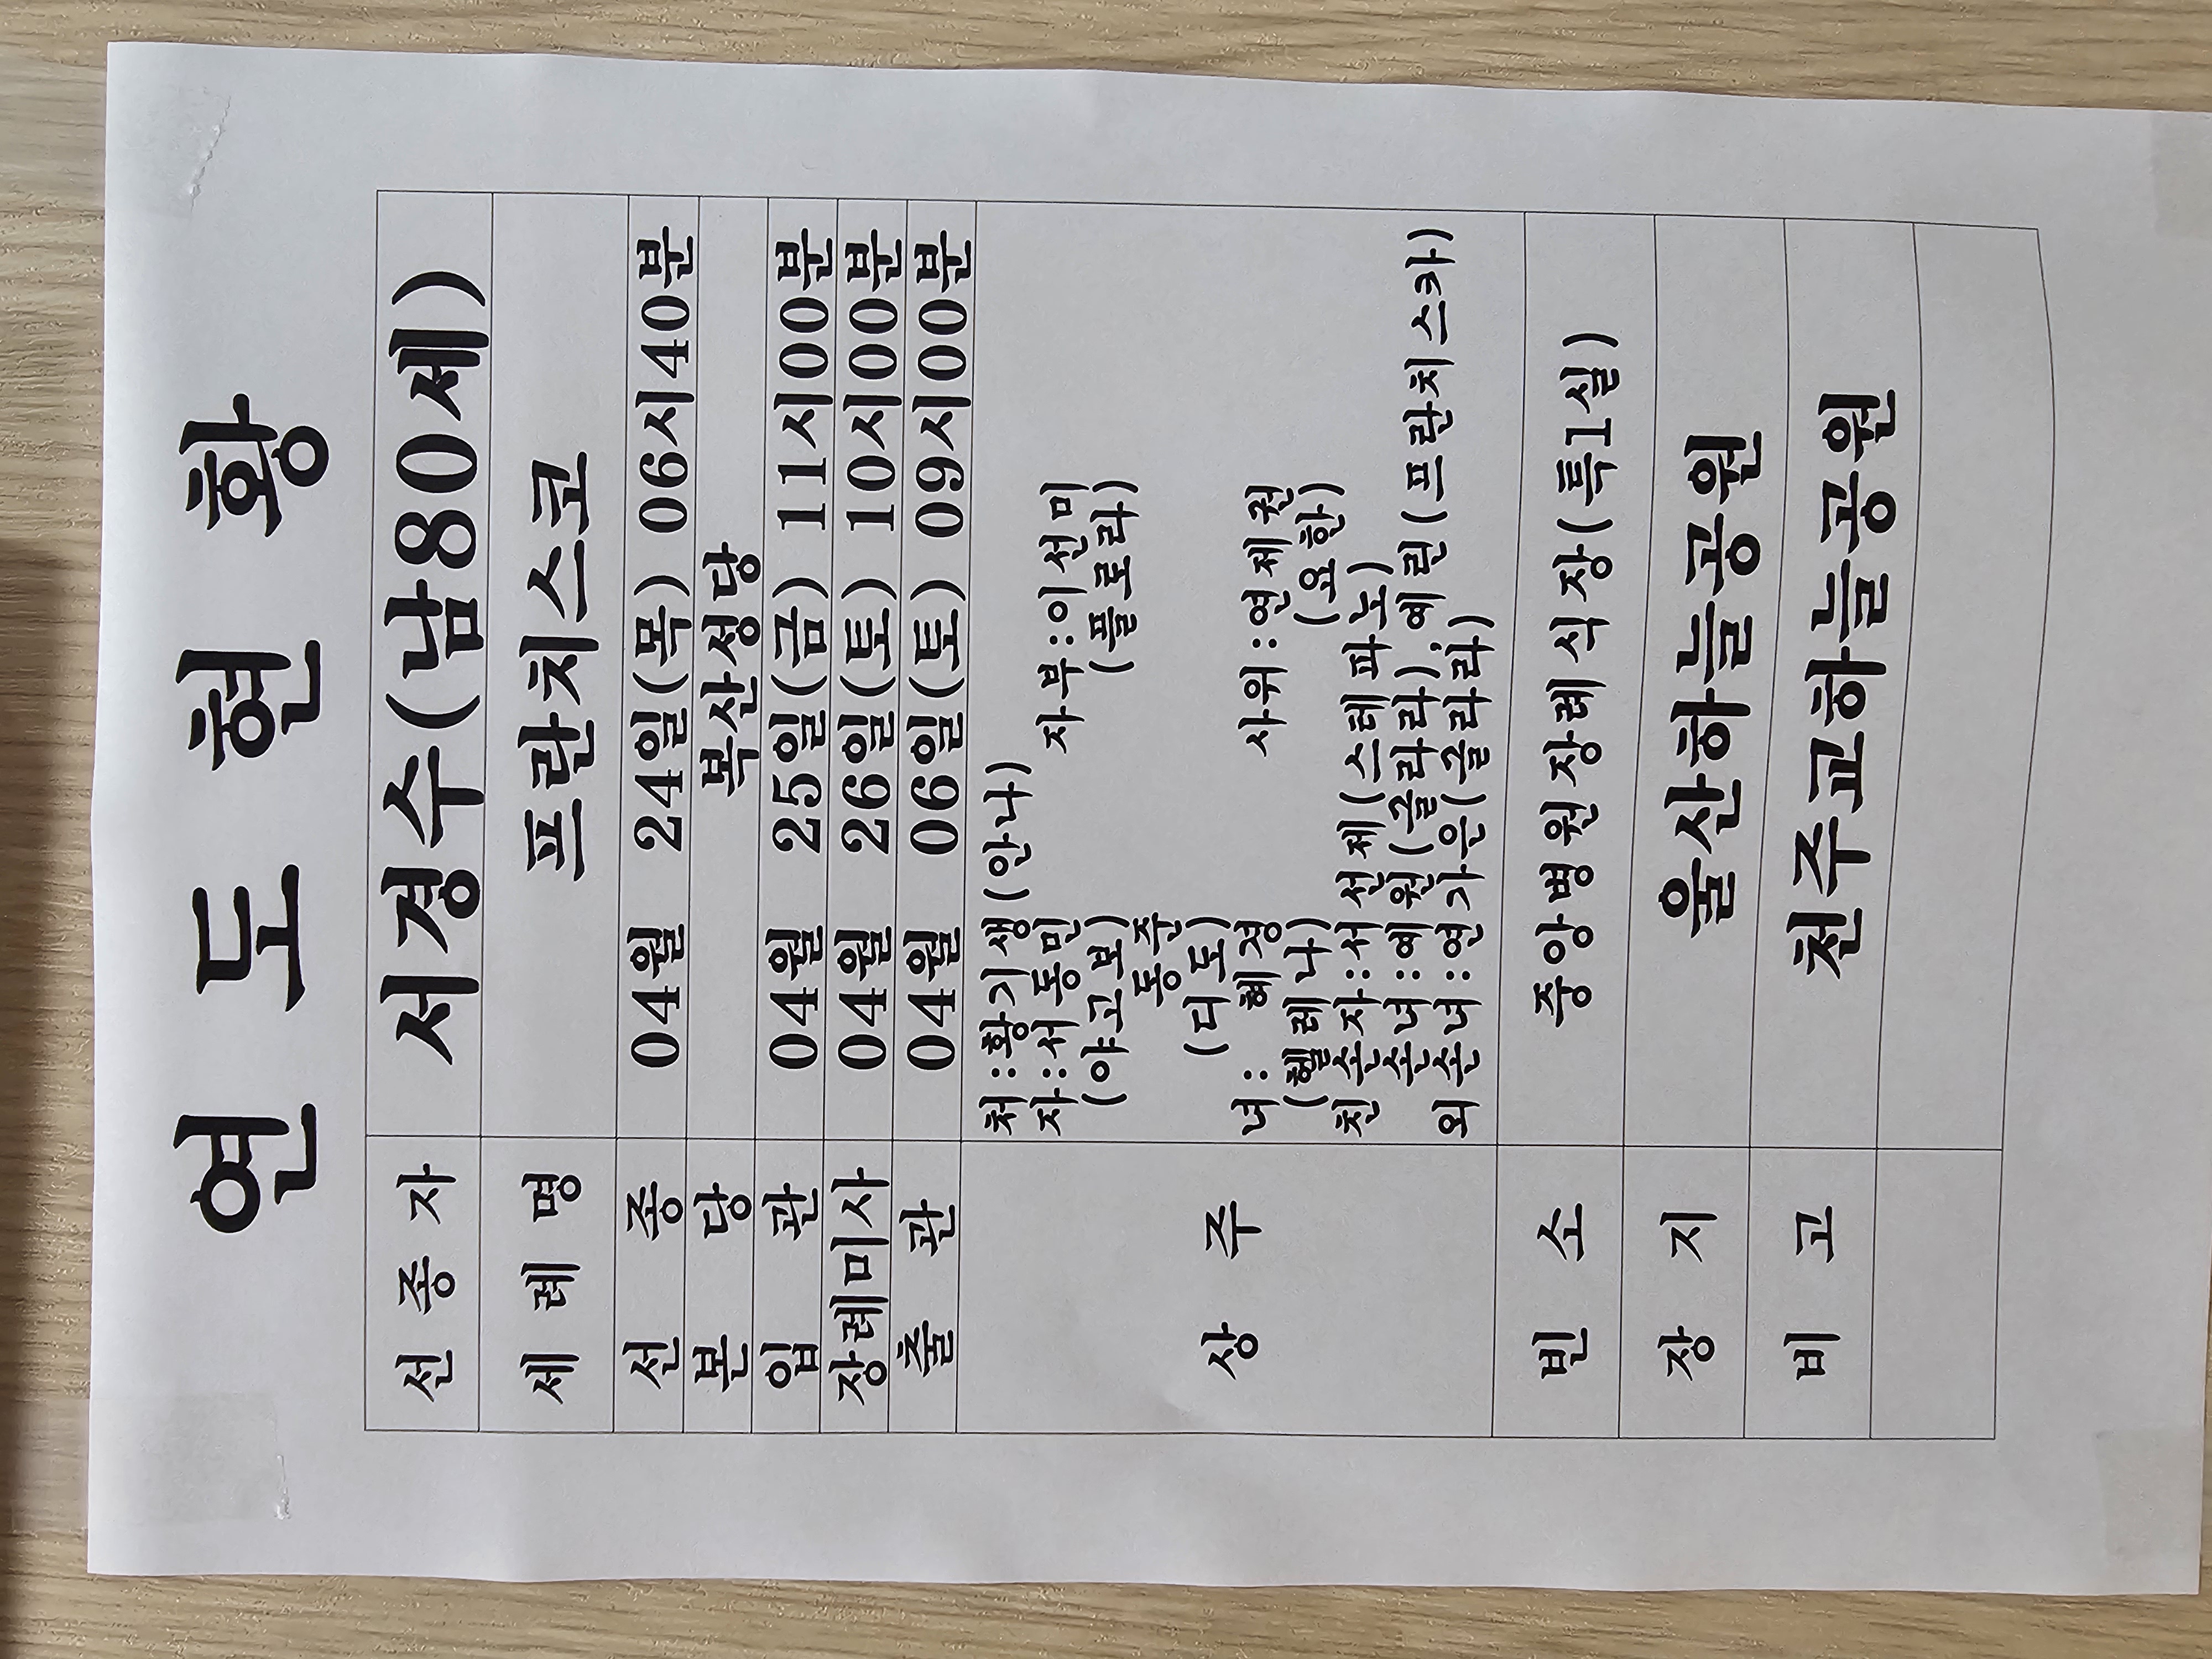 연 도 현 황
선 종 자 서경수(남80세)
세 례 명 프란치스코
선 종 04월 24일(목) 06시40분
본 당 복산성당
입 관 04월 25일(금) 11시00분
장례미사 04월 26일(토) 10시00분
출 관 04월 06일(토) 09시00분
상 주
처:황기생(안나)
자:서동민 자부:이선미
(야고보) (플로라)
동준
(디도)
녀: 혜경 사위:연제권
(헬레나) (요한)
친손자:서선제(스테파노)
손녀:예원(클라라).예린(프란치스카)
외손녀:연가은(글라라)
빈 소 중앙병원장례식장(특1실)
장 지 울산하늘공원
비 고 천주교하늘공원